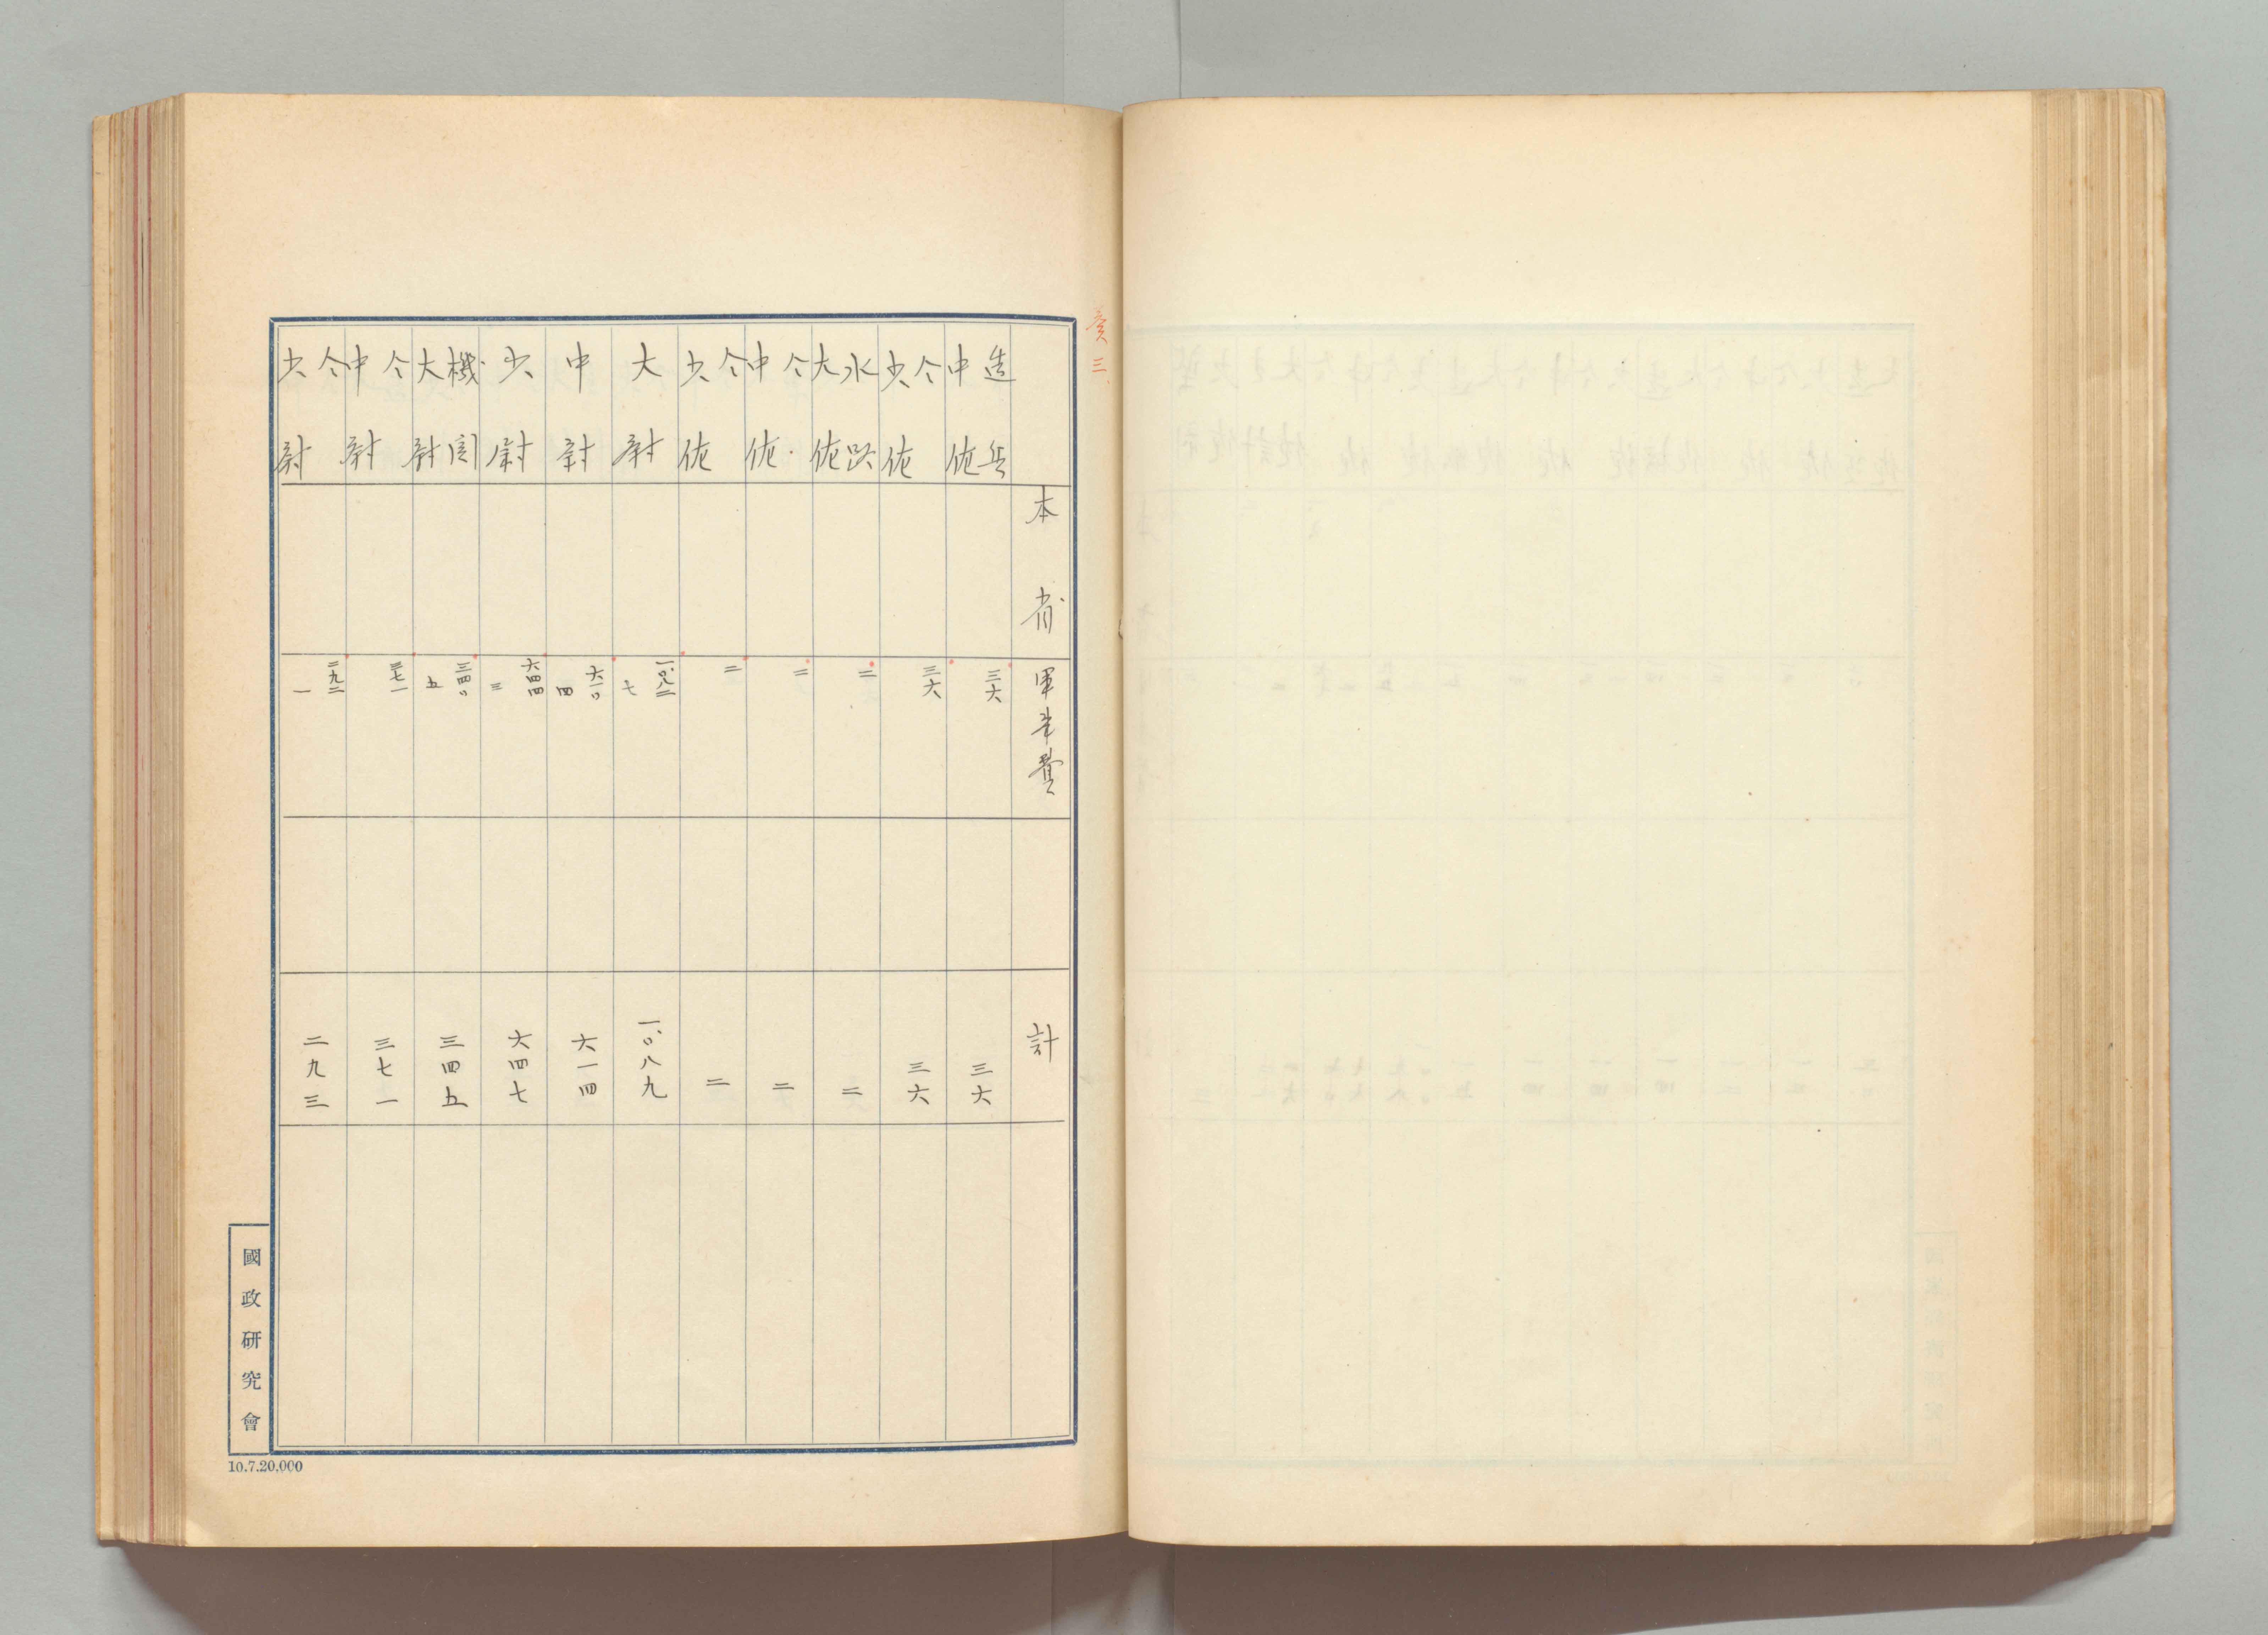 三
本省 軍事費 計
造兵中佐 三六 三六
仝少佐 三六 三六
水路大佐 二 二
仝中佐 二 二
仝少佐 二 二
大尉 一、〇八二 七 一、〇八九
中尉 六一〇 四 六一四
少尉 六四四 三 六四七
機関大尉 三四〇 五 三四五
仝中尉 三七一 三七一
仝少尉 二九二 一 二九三
國政研究會
10.7.20,000